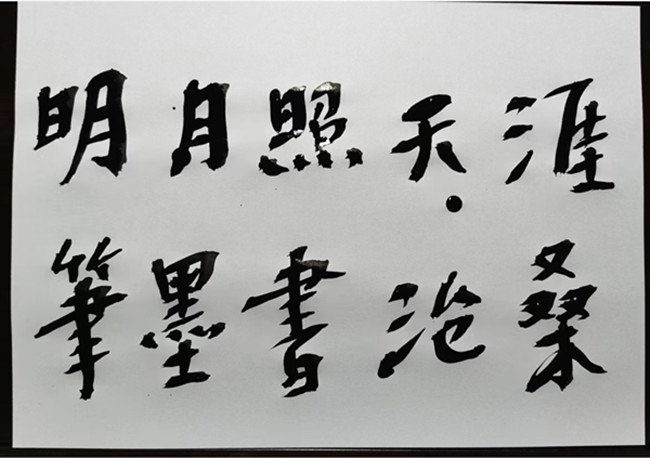 明月照天涯
筆墨書沧桑